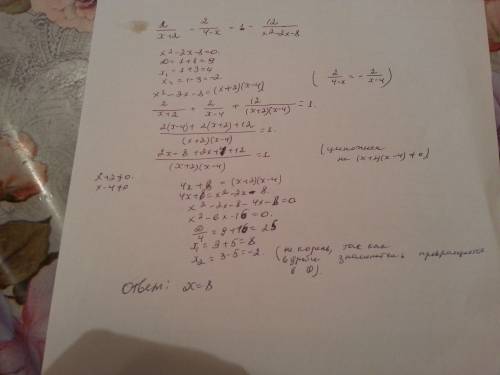 2/(x+2) - 2/(4-x) = 1 - 12/(x²-2x-8)
x²-2x-8=0.
D=1+8=9
x₁=1+3=4
x₂=1-3=-2
x²-2x-8=(x+2)(x-4) ( 2/(4-x) = - 2/(x-4) )
2/(x+2) + 2/(x-4) + 12/((x+2)(x-4)) = 1.
(2(x-4)+2(x+2)+12)/((x+2)(x-4)) = 1.
(2x-8+2x+4+12)/((x+2)(x-4)) = 1 (умножим на (x+2)(x-4)≠0)
x+2≠0
x-4≠0
4x+8=(x+2)(x-4)
4x+8=x²-2x-8
x²-2x-8-4x-8=0
x²-6x-16=0.
D/4=9+16=25
x₁=3+5=8
x₂=3-5=-2 (не корень, так как в дроби знаменатель превращается в 0).
Ответ: x=8